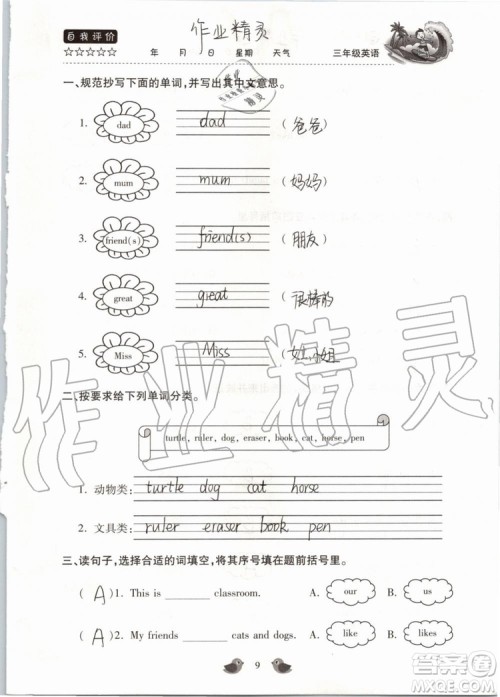 自我评价
作业精灵
☆☆☆☆☆ 年 月 日 星期 天气 三年级英语
一、规范抄写下面的单词,并写出其中文意思。
1. dad dad (爸爸)
2. mum mum (妈妈)
3. friend(s) friend(s) (朋友)
4. great great (很棒的)
5. Miss Miss (女士,小姐)
二、按要求给下列单词分类。
turtle, ruler, dog, eraser, book, cat, horse, pen
1. 动物类: turtle dog cat horse
2. 文具类: ruler eraser book pen
三、读句子,选择合适的词填空,将其序号填在题前括号里。
(A)1. This is ________ classroom. A. our B. us
(A)2. My friends ________ cats and dogs. A. like B. likes
9
作业精灵
答案圈
MXQE.COM